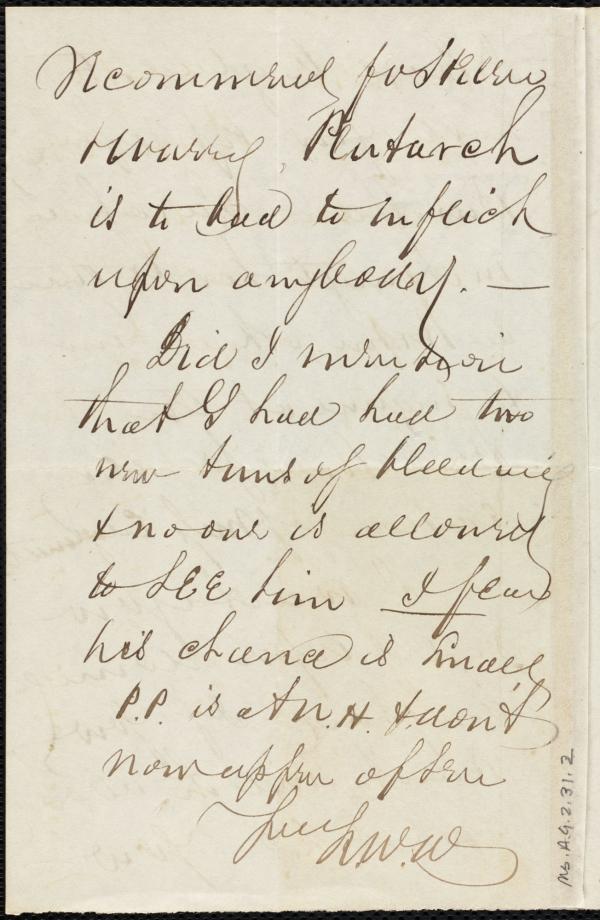 recommend
Plutarch
is to bad to inflict
upon anybody. —
Did I mention
that G had had two
new turns of bleeding
& no one is allowed
to SEE him I fear
his chance is small
P.P. is at N.H. & don't
now appear often
L.W.W
Ms. A.9.2.31.2